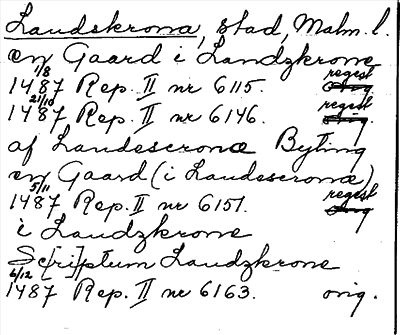 Landskrona, stad, Malm. l.
en Gaard i Landzkrone
1/8 1487 Rep. II nr 6115. regest
21/10 1487 Rep. II nr 6146. regest
af Landescronæ Byting
en Gaard (i Landescronæ)
5/11 1487 Rep. II nr 6151. regest
i Landzkrone
Sc[ri]ptum Landzkrone
6/12 1487 Rep. II nr 6163. orig.